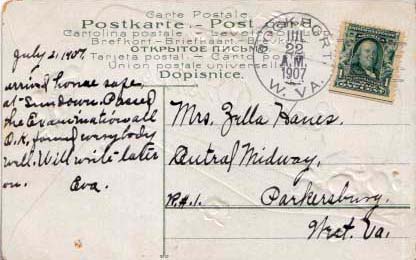 Carte Postale
Postkarte - Post Card
Cartolina postale - Levelező-
Brefkort - Briefkaart - Brev
ОТКРЫТОЕ ПИСЬМО
Tarjeta postal - Carto post
Union postale universelle
Dopisnice.
JUL
22
A.M.
1907
W. VA.
1
July 21 1907.
arrived home safe
at Sundown. Passed
the Examination all
O.K, found everybody
well. Will write later
on. Eva.
Mrs. Zella Hanes.
Central Midway,
R.#.1. Parkersburg,
West. Va.